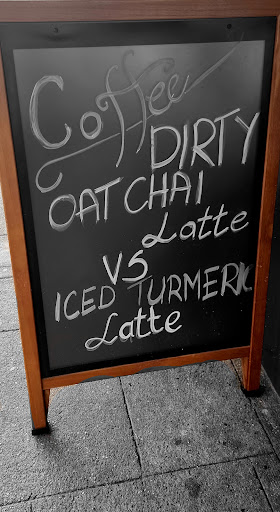 Coffee
DIRTY
OAT CHAI
Latte
VS
ICED TURMERIC
Latte